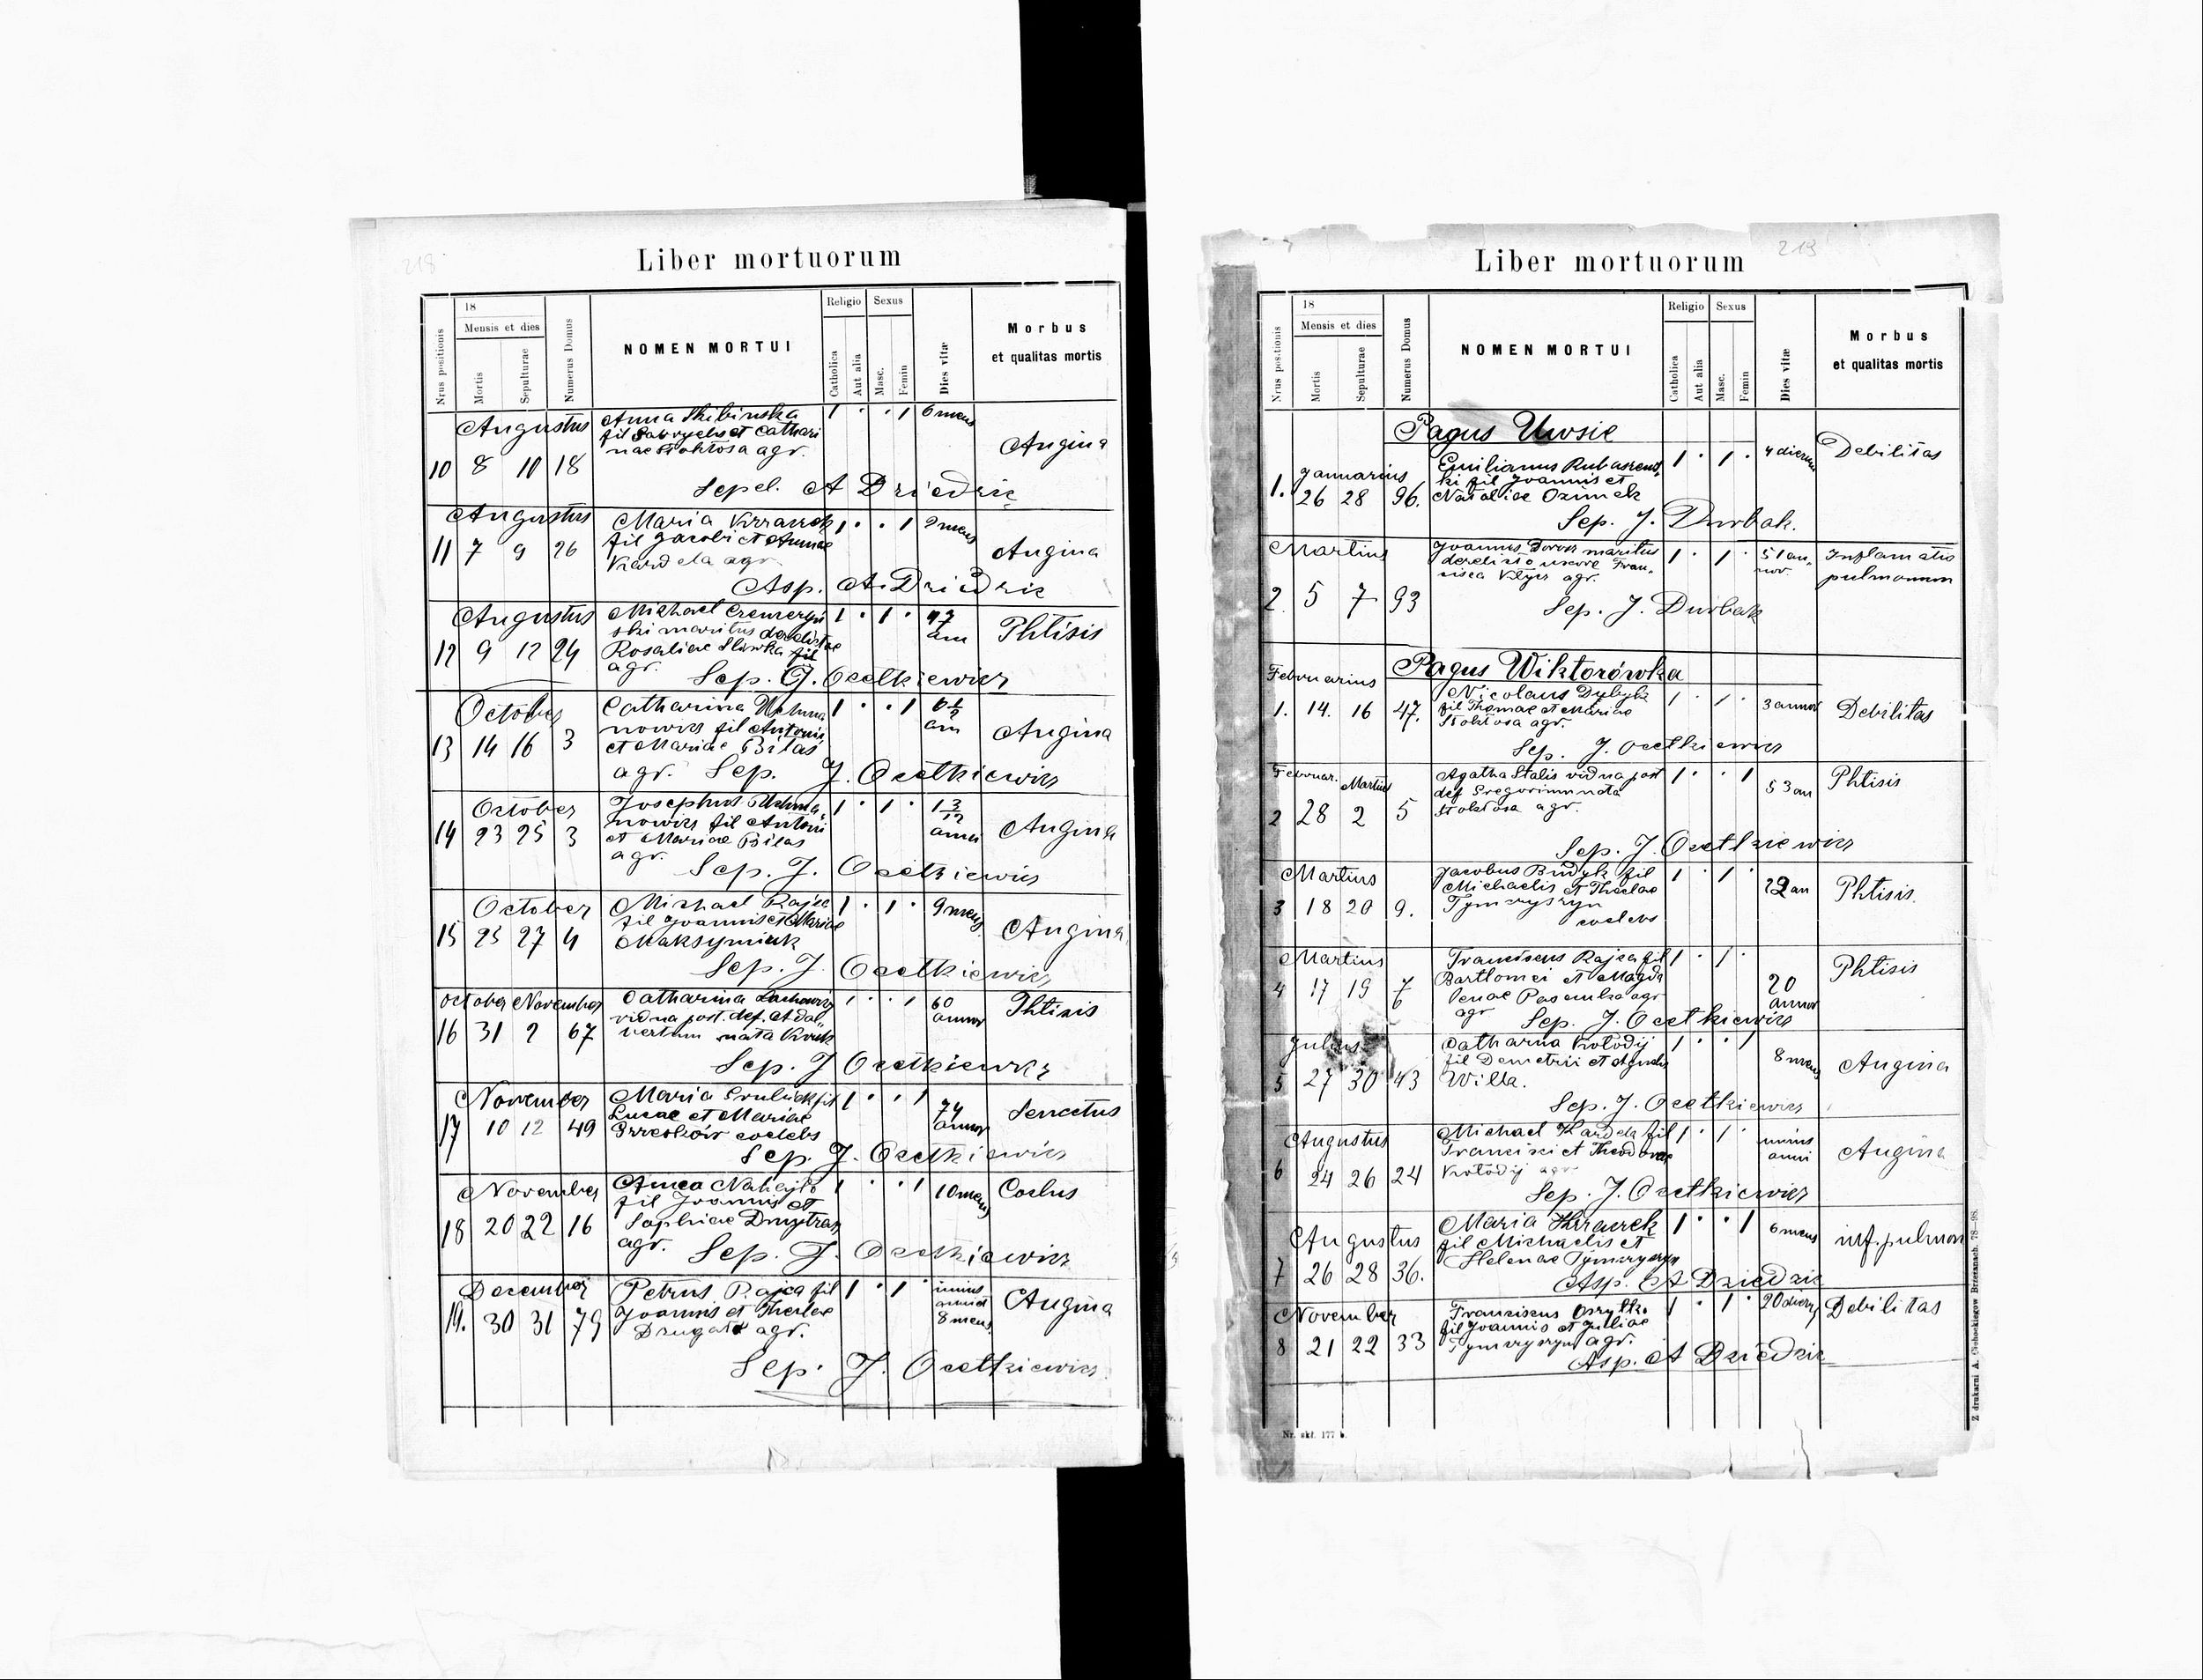 218
Liber mortuorum
18
Mensis et dies
Nrus positionis
Mortis
Sepulturae
Numerus Domus
NOMEN MORTUI
Religio
Catholica
Aut alia
Sexus
Masc.
Femin
Dies vitæ
Morbus
et qualitas mortis
Augustus
10 8 10 18
Anna Skibinska
fil et Cathari
nae Stoktosa agr.
1 · · 1 6 mens
Augina
Sepel. A Dziedzic
Augustus
11 7 9 26
Maria
fil Jacobi et Annae
Kardela agr.
1 · · 1 9 mens
Augina
Asp. A. Dziedzic
Augustus
12 9 12 24
Michael
ski maritus derelictae
Rosaliae Sliwka fil
agr.
1 · 1 · 47
ann
Phtisis
Sep. J. Ocetkiewicz
October
13 14 16 3
Catharina Uchma
nowicz fil Antonii
et Mariae Bilas
agr.
1 · · 1
Augina
Sep. J. Ocetkiewicz
October
14 23 25 3
Josephus Uchma
nowicz fil Antoni
et Mariae Bilas
agr.
1 · 1 · 1 3/12
Augina
Sep. J. Ocetkiewicz
October
15 25 27 4
Michael Rajca
fil Joannis et Mariae
Maksymiuk
1 · 1 · 9 mens
Augina
Sep. J. Ocetkiewicz
October November
16 31 2 67
Catharina
vidua post. def. Adal
bertum nata Kruk
1 · · 1 60
annor
Phtisis
Sep. J Ocetkiewicz
November
17 10 12 49
Maria fil
Lucae et Mariae
coelebs
1 · · 1 74
annor
Senectus
Sep. J. Ocetkiewicz
November
18 20 22 16
fil Joannis et
Sophiae
agr.
1 · · 1 10 mens
Sep. J. Ocetkiewicz
December
19. 30 31 79
Petrus Rajca fil
Joannis et Theclae
agr.
1 · 1 · unius
8 mens.
Augina
Sep. J. Ocetkiewicz
219
Liber mortuorum
18
Mensis et dies
Nrus positionis
Mortis
Sepulturae
Numerus Domus
NOMEN MORTUI
Religio
Catholica
Aut alia
Sexus
Masc.
Femin
Dies vitæ
Morbus
et qualitas mortis
Pagus Uwsie
Januarius
1. 26 28 96.
Emilianus
ki fil Joannis et
Nataliae
1 · 1 · 4 dierum
Debilitas
Sep. J. Durbak.
Martius
2. 5 7 93
Joannes maritus
derelicto uxore Fran-
cisca agr.
1 · 1 · 51 an-
nor.
Inflamatio
pulmonum
Sep. J. Durbak
Pagus Wiktorówka
Februarius
1. 14. 16 47.
Nicolaus
fil Thomae et Mariae
Stoktosa agr.
1 · 1 · 3 annor
Debilitas
Sep. J. Ocetkiewicz
Februar. Martius
2 28 2 5
Agatha Stalis vidua post
def Gregorium nata
Stoktosa agr.
1 · · 1 53 an
Phtisis
Sep. J. Ocetkiewicz
Martius
3 18 20 9.
Jacobus Budyk fil
Michaelis et Theclae
Tymczyszyn
coelebs
1 · 1 · 22 an
Phtisis.
Martius
4 17 19 7
6
Franciscus Rajca fil
Bartlomei et Magda
lenae agr
agr
1 · 1 · 20
annor
Phtisis
Sep. J. Ocetkiewicz
Julius
5 27 30 43
Catharina Kołodij
fil Demetrii et
Willa.
1 · · 1 8 mens
Augina
Sep. J. Ocetkiewicz
Augustus
6 24 26 24
Michael Kardela fil
Francisci et Theodorae
Kołodij agr
1 · 1 · unius
anni
Augina
Sep. J. Ocetkiewicz
Augustus
7 26 28 36.
Maria
fil Michaelis et
Helenae Tymczyszyn
1 · · 1 6 mens
inf. pulmon
Asp. A Dziedzic
November
8 21 22 33
Franciscus
fil Joannis et Juliae
Tymczyszyn agr.
1 · 1 · 20 dierum
Debilitas
Asp. A Dziedzic
Nr. skł. 177 b.
Z drukarni A. Cichockiegow Brzezanach. 78—98.